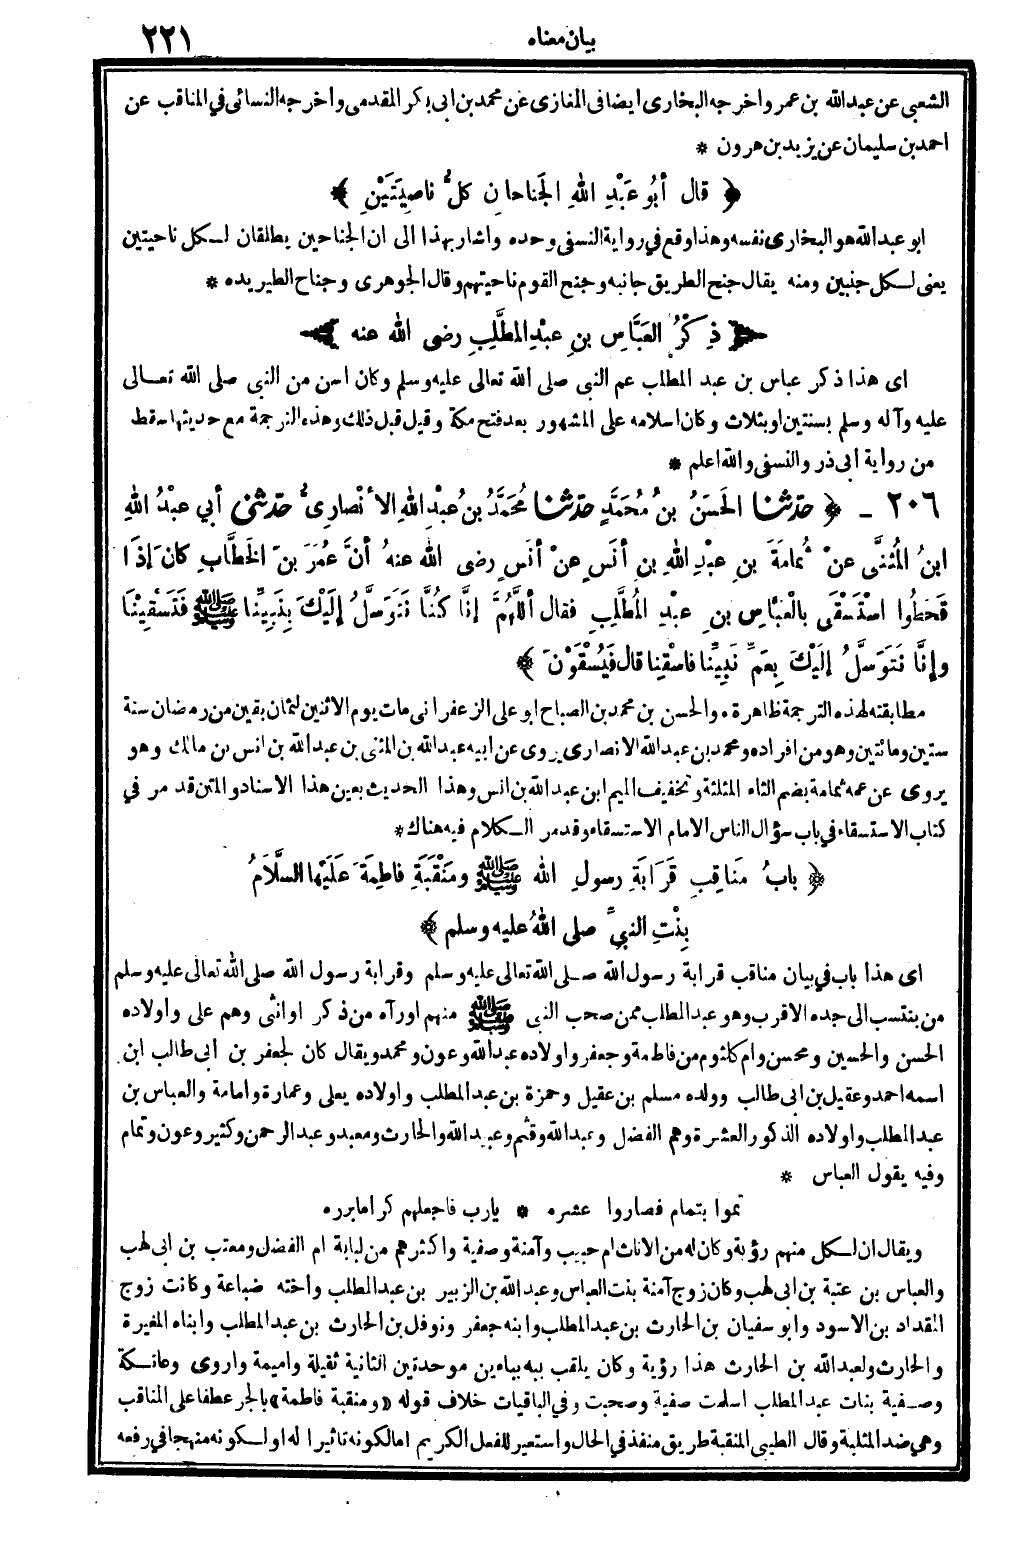 بيان معناه ٢٢١
الشعبي عن عبدالله بن عمر وأخرجه البخارى ايضا فى المغازى عن محمد بن ابى بكر المقدمى وأخرجه النسائى في المناقب عن
احمد بن سليمان عن يزيد بن هرون *
﴿ قال أبُو عَبْدِ اللهِ الجَناحانِ كلُّ ناصِيَتَيْنِ ﴾
ابو عبدالله هو البخارى نفسه وهذا وقع في رواية النسفى وحده واشار بهذا الى ان الجناحين يطلقان لكل ناحيتين
يعنى لكل جنبين ومنه يقال جنح الطريق جانبه وجنح القوم ناحيتهم وقال الجوهرى وجناح الطير يده *
﴿ ذِكْرُ العَبَّاسِ بنِ عبْدِ المطَّلِبِ رضى الله عنه ﴾
اى هذا ذكر عباس بن عبد المطلب عم النبى صلى الله تعالى عليه وسلم وكان اسن من النبى صلى الله تعالى
عليه وآله وسلم بسنتين او بثلاث وكان اسلامه على المشهور بعد فتح مكة وقيل قبل ذلك وهذه الترجمة مع حديثها سقط
من رواية أبى ذر والنسفى والله اعلم *
٢٠٦ ـ ﴿ حدّثنا الحَسَنُ بنُ مُحَمَّدٍ حدّثنا مُحَمَّدُ بنُ عبْدِ اللهِ الأنْصارِىُّ حدّثنى أبي عبْدُ اللهِ
ابنُ المُثنَّى عنْ ثُمامَةَ بنِ عبْدِ اللهِ بنِ أنَسٍ عنْ أنَسٍ رضى الله عنهُ أنَّ عُمَرَ بنَ الخَطَّابِ كانَ إذَا
قَحَطُوا اسْتَسْقَى بالْعَبَّاسِ بنِ عبْدِ المُطَّلِبِ فقال أللَّهُمَّ إنَّا كُنَّا نَتَوَسَّلُ إلَيْكَ بِنَبِيِّنا ﷺ فَتَسْقِيْنَا
وإنَّا نَتَوَسَّلُ إلَيْكَ بِعَمِّ نَبِيِّنا فاسْقِنا قال فَيُسْقَوْنَ ﴾
مطابقته لهذه الترجمة ظاهرة، والحسن بن محمد بن الصباح ابو على الزعفرانى مات يوم الاثنين لثمان بقين من رمضان سنة
ستين ومائتين وهو من افراده ومحمد بن عبدالله الانصارى يروى عن ابيه عبدالله بن المثنى بن عبدالله بن انس بن مالك وهو
يروى عن عمه ثمامة بضم الثاء المثلثة وتخفيف الميم ابن عبد الله بن انس وهذا الحديث بعين هذا الاسناد والمتن قد مر في
كتاب الاستسقاء في باب سؤال الناس الامام الاستسقاء وقد مر الكلام فيه هناك *
﴿ بابُ مَناقِبِ قَرَابَةِ رسولِ الله ﷺ ومَنْقَبَةِ فاطِمَةَ عَلَيْها السَّلَامُ
بِنْتِ النبيِّ صلى اللهُ عليه وسلم ﴾
اى هذا باب في بيان مناقب قرابة رسول الله صلى الله تعالى عليه وسلم وقرابة رسول الله صلى الله تعالى عليه وسلم
من ينتسب الى جده الاقرب وهو عبد المطلب ممن صحب النبى ﷺ منهم او رآه من ذكر او انثى وهم على واولاده
الحسن والحسين ومحسن وام كلثوم من فاطمة وجعفر واولاده عبد الله وعون ومحمد ويقال كان لجعفر بن ابى طالب ابن
اسمه احمد وعقيل بن ابى طالب وولده مسلم بن عقيل وحمزة بن عبد المطلب واولاده يعلى وعمارة وامامة والعباس بن
عبد المطلب واولاده الذكور العشرة وهم الفضل وعبدالله وقثم وعبيد الله والحارث ومعبد وعبد الرحمن وكثير وعون وتمام
وفيه يقول العباس *
تموا بتمام فصاروا عشره * يارب فاجعلهم كراما برره
ويقال ان لكل منهم رؤية وكان له من الاناث ام حبيب وآمنة وصفية واكثرهم من لبابة ام الفضل ومعتب بن ابى لهب
والعباس بن عتبة بن ابى لهب وكان زوج آمنة بنت العباس وعبد الله بن الزبير بن عبد المطلب وأخته ضباعة وكانت زوج
المقداد بن الاسود وابو سفيان بن الحارث بن عبد المطلب وابنه جعفر ونوفل بن الحارث بن عبد المطلب وابناه المغيرة
والحارث ولعبد الله بن الحارث هذا رؤية وكان يلقب ببه بباءين موحدتين الثانية ثقيلة واميمة واروى وعاتكة
وصفية بنات عبد المطلب اسلمت صفية وصحبت وفي الباقيات خلاف قوله «ومنقبة فاطمة» بالجر عطفا على المناقب
وهي ضد المثلبة وقال الطيبى المنقبة طريق منفذ في الحال واستعير للفعل الكريم اما لكونه تاثيرا له او لكونه منهجا في رفعه